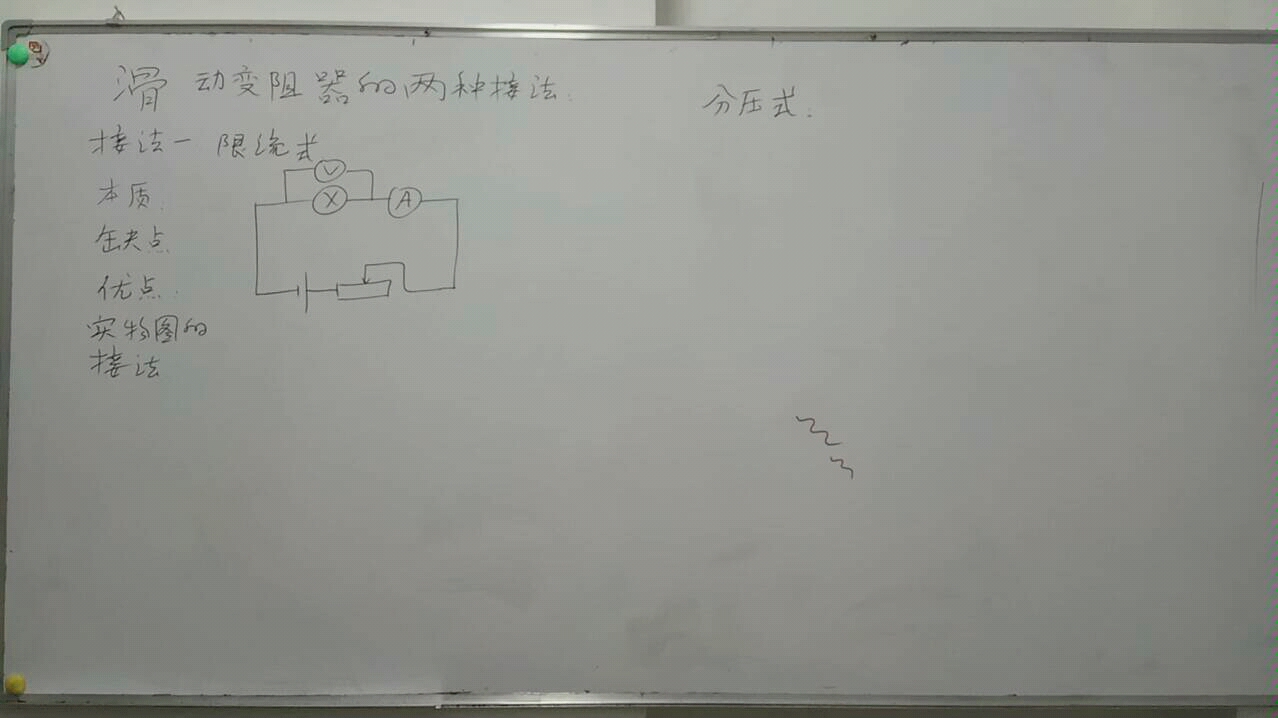 滑动变阻器的两种接法.
接法一 限流式
本质.
缺点
优点.
实物图的
接法
V
X
A
分压式.